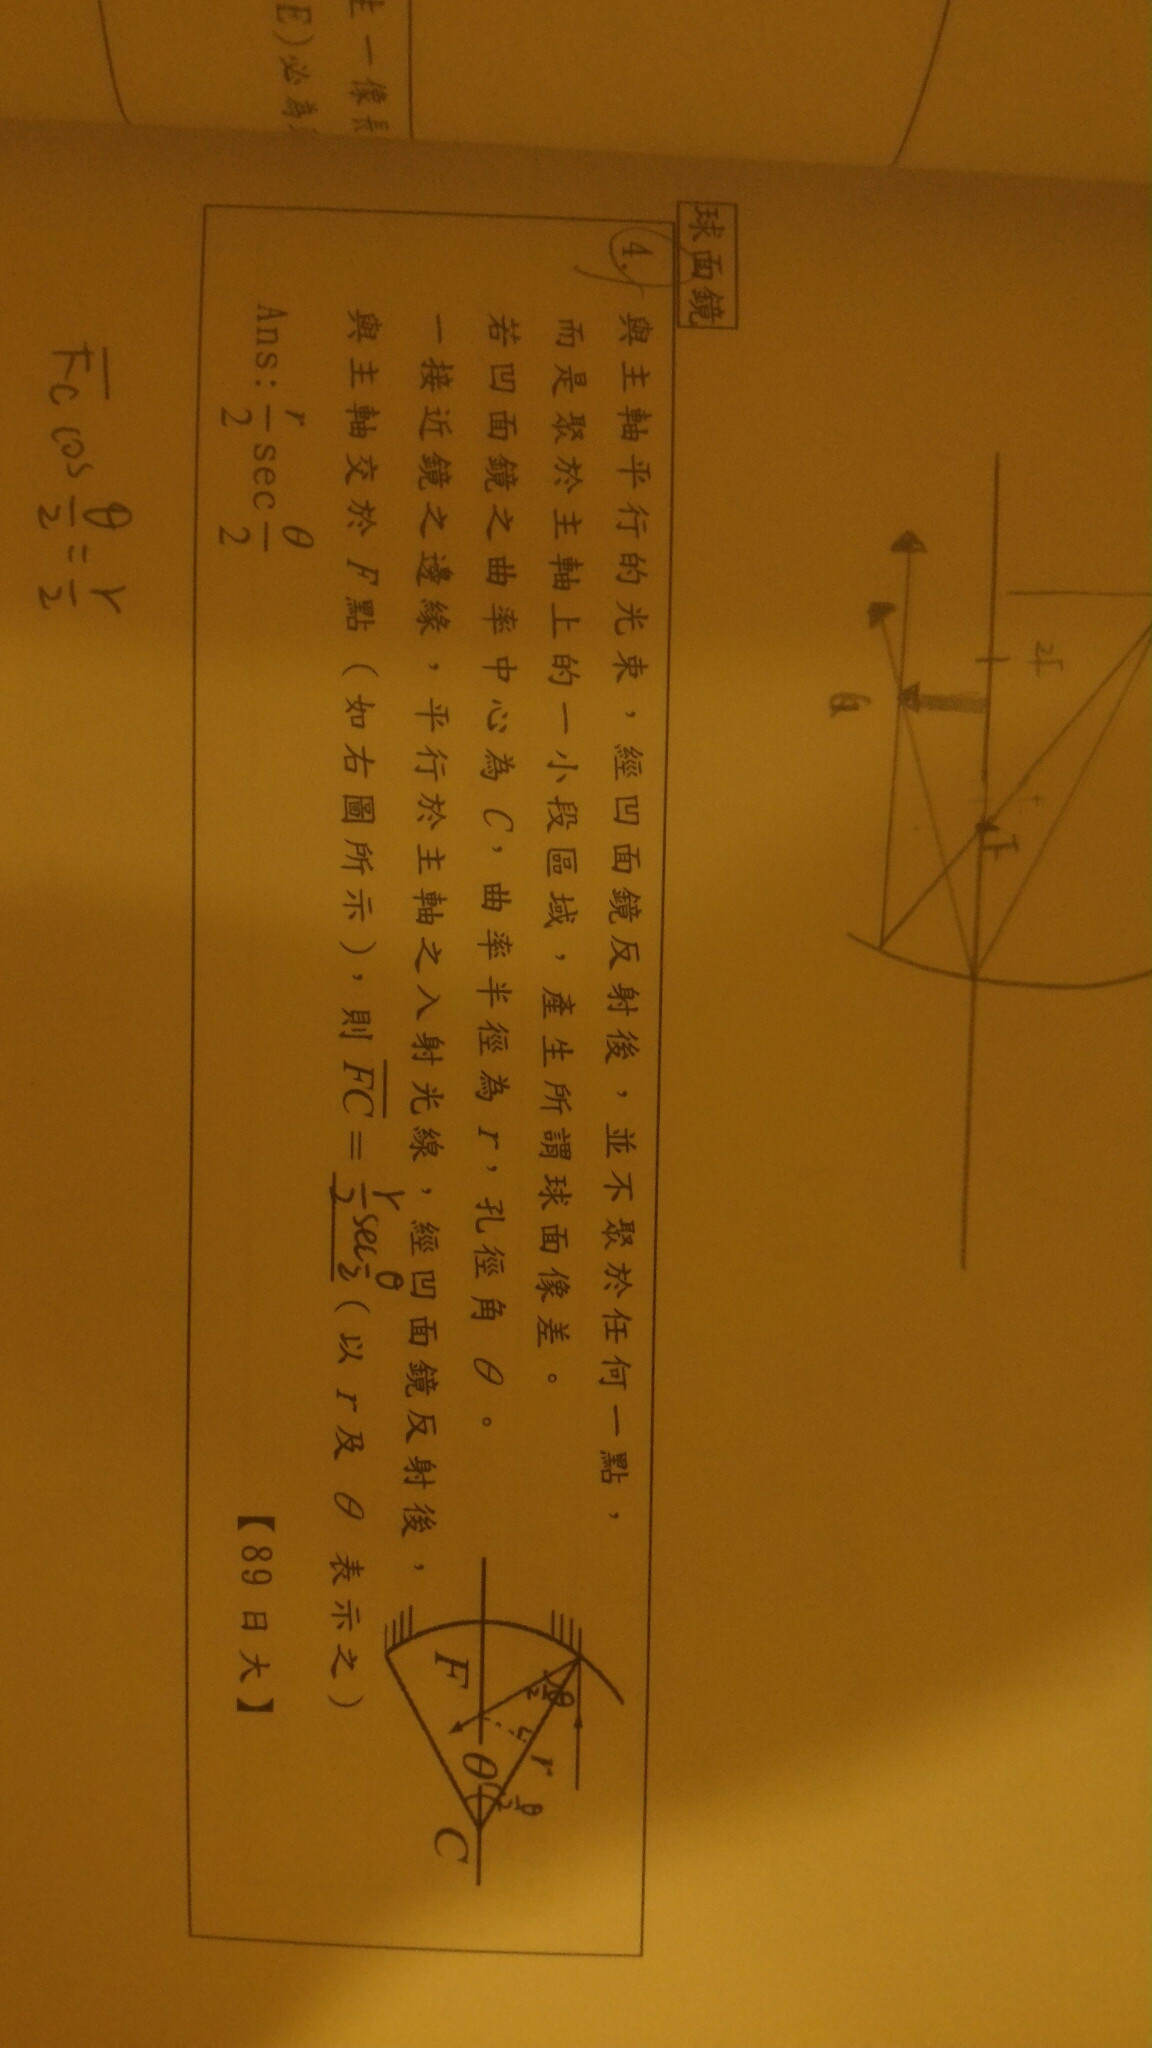 生一像長
E)必為
2F
F
球面鏡
4. 與主軸平行的光束，經凹面鏡反射後，並不聚於任何一點，
而是聚於主軸上的一小段區域，產生所謂球面像差。
若凹面鏡之曲率中心為 C，曲率半徑為 r，孔徑角 θ。
一接近鏡之邊緣，平行於主軸之入射光線，經凹面鏡反射後，
與主軸交於 F 點（如右圖所示），則 F̅C̅ = r/2 sec θ/2（以 r 及 θ 表示之）
Ans: r/2 sec θ/2
【89 日大】
θ/2
r
θ/2
F
θ
C
F̅C̅ cos θ/2 = r/2